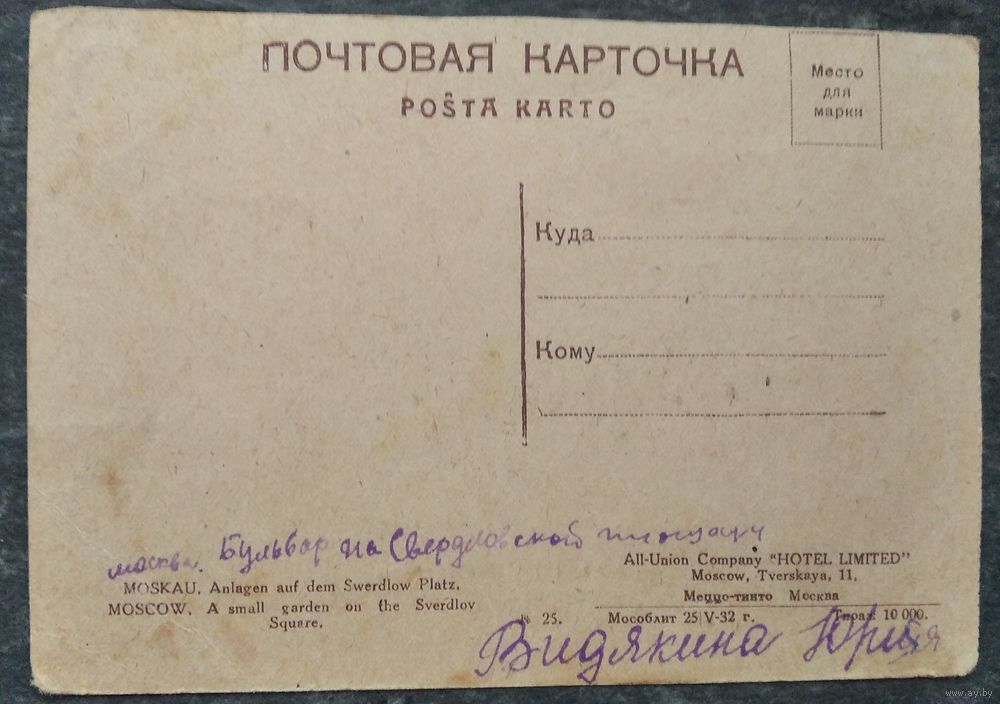 ПОЧТОВАЯ КАРТОЧКА
POŜTA KARTO
Место
для
марки
Куда
Кому
Москва. Бульвар на Свердловской площади
MOSKAU. Anlagen auf dem Swerdlow Platz.
MOSCOW. A small garden on the Sverdlov
Square.
All-Union Company "HOTEL LIMITED"
Moscow, Tverskaya, 11.
Меццо-тинто Москва
№ 25. Мособлит 25|V-32 г. Тираж 10 000.
Видякина Юрия
www.ay.by